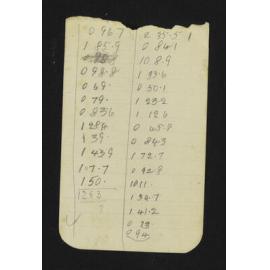 0 96.7
1 85.9
0 98.8
0 69.
0 79.
0 83.6
1 28.4
1 39.
1 43.9
1 07.7
1 50.
1293
2 35.5
0 84.1
1 08.9
1 33.6
0 50.1
1 23.2
1 12.6
0 65.8
0 84.3
1 72.7
0 92.8
1 01.1
1 34.7
1 41.2